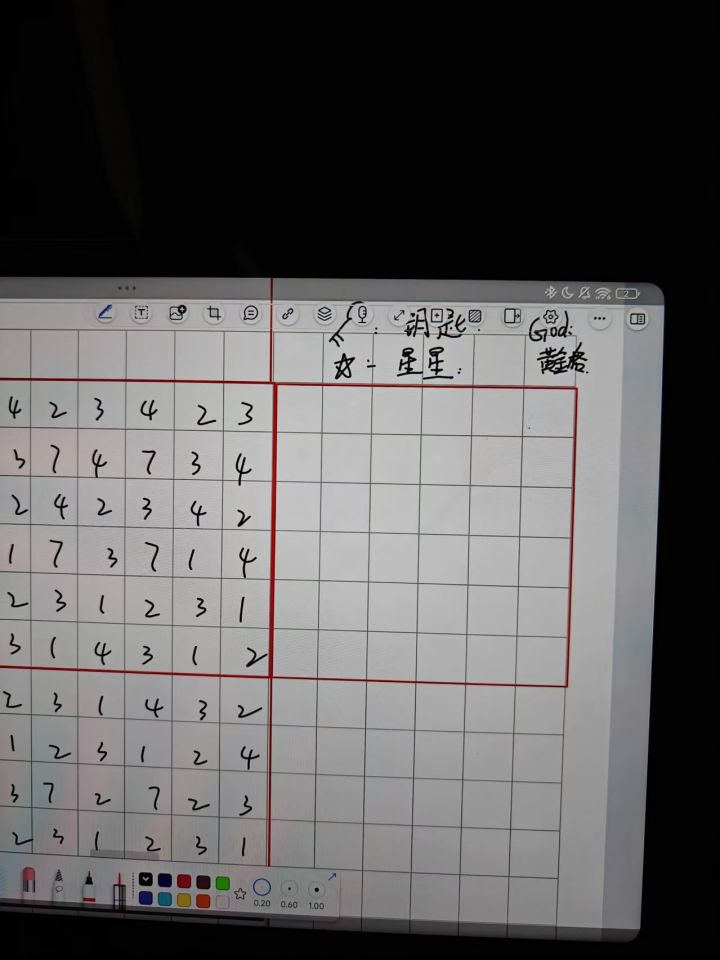 : 钥匙. God:
☆ - 星星. 黄金格.
4 2 3 4 2 3
3 7 4 7 3 4
2 4 2 3 4 2
1 7 3 7 1 4
2 3 1 2 3 1
3 1 4 3 1 2
2 3 1 4 3 2
1 2 3 1 2 4
3 7 2 7 2 3
2 3 1 2 3 1
0.20 0.60 1.00